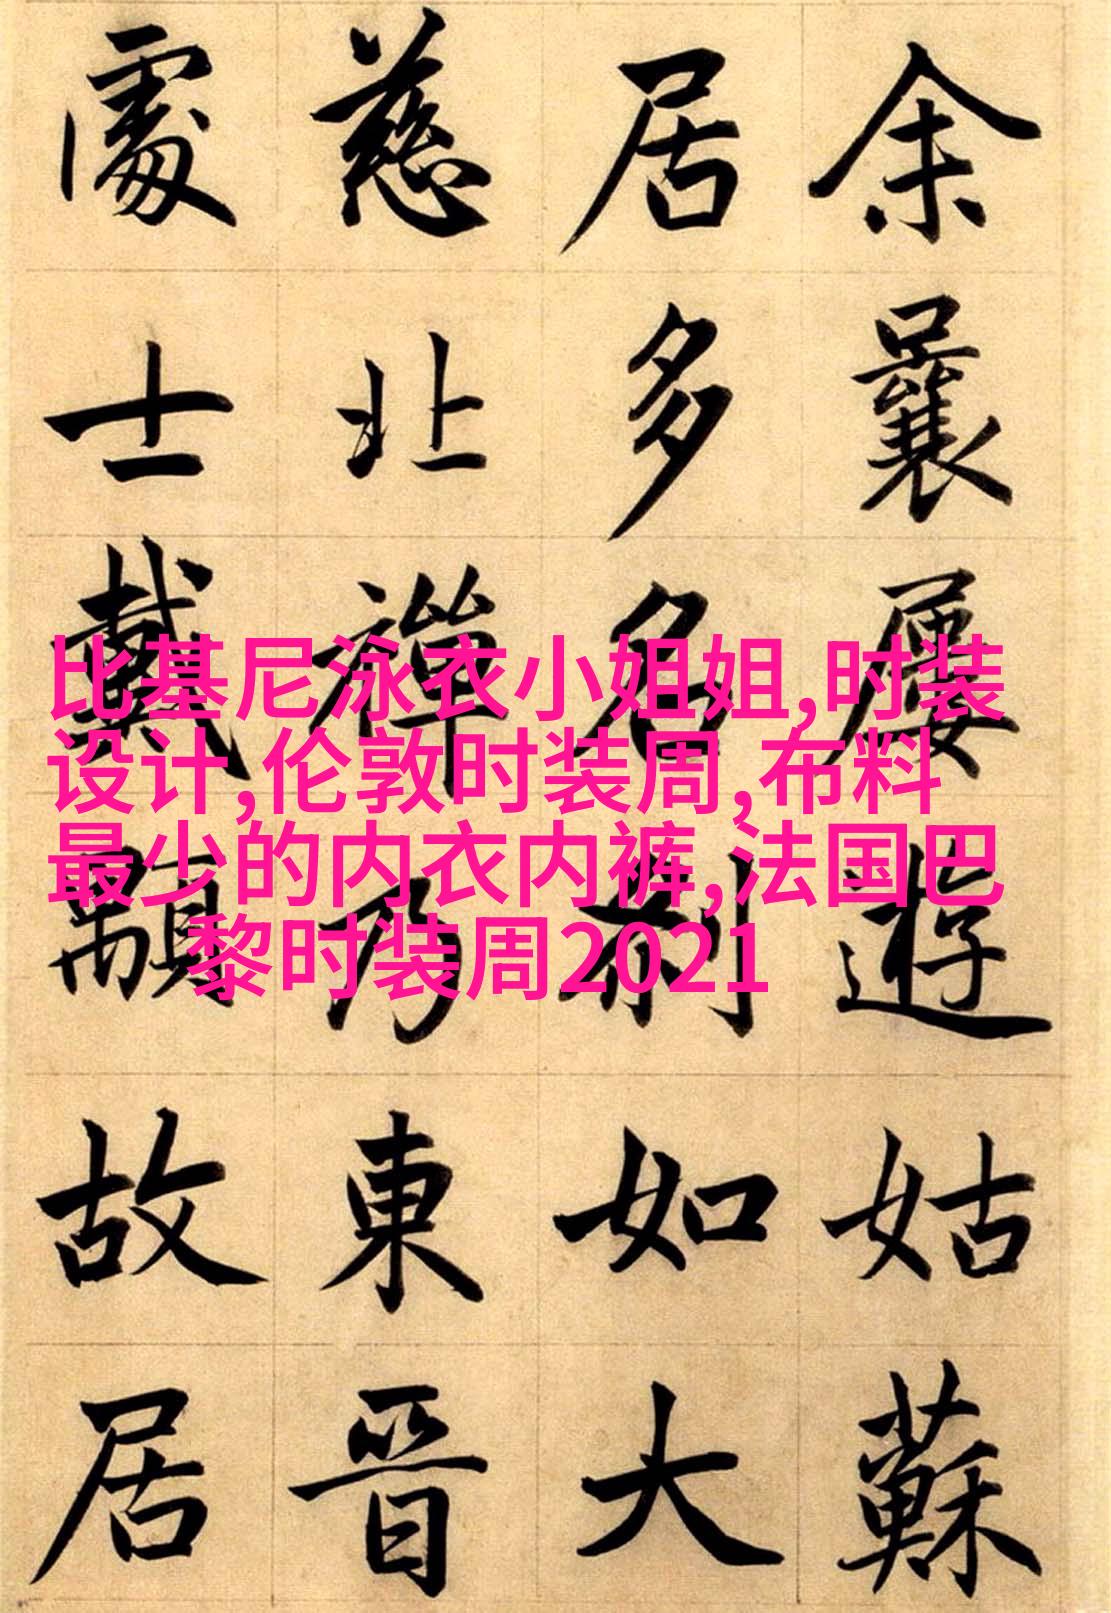 余曩屢遊姑蘇
居多名刹如大
慈北禪乃東晉
處士戴顒故居
比基尼泳衣小姐姐,时装
设计,伦敦时装周,布料
最少的内衣内裤,法国巴
黎时装周2021